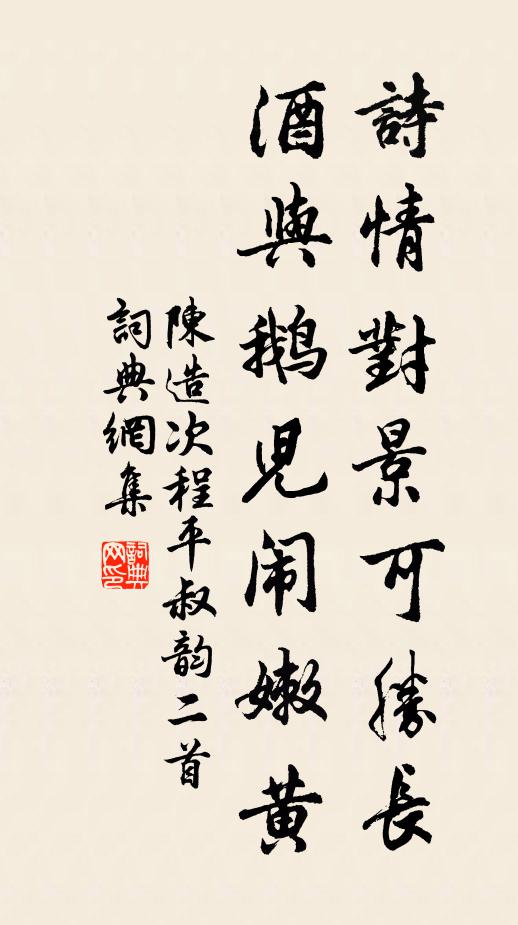 詩情對景可勝長
酒與鵝兒闹嫩黃
陳造次程平叔韵二首
詞典網集
詞典網印